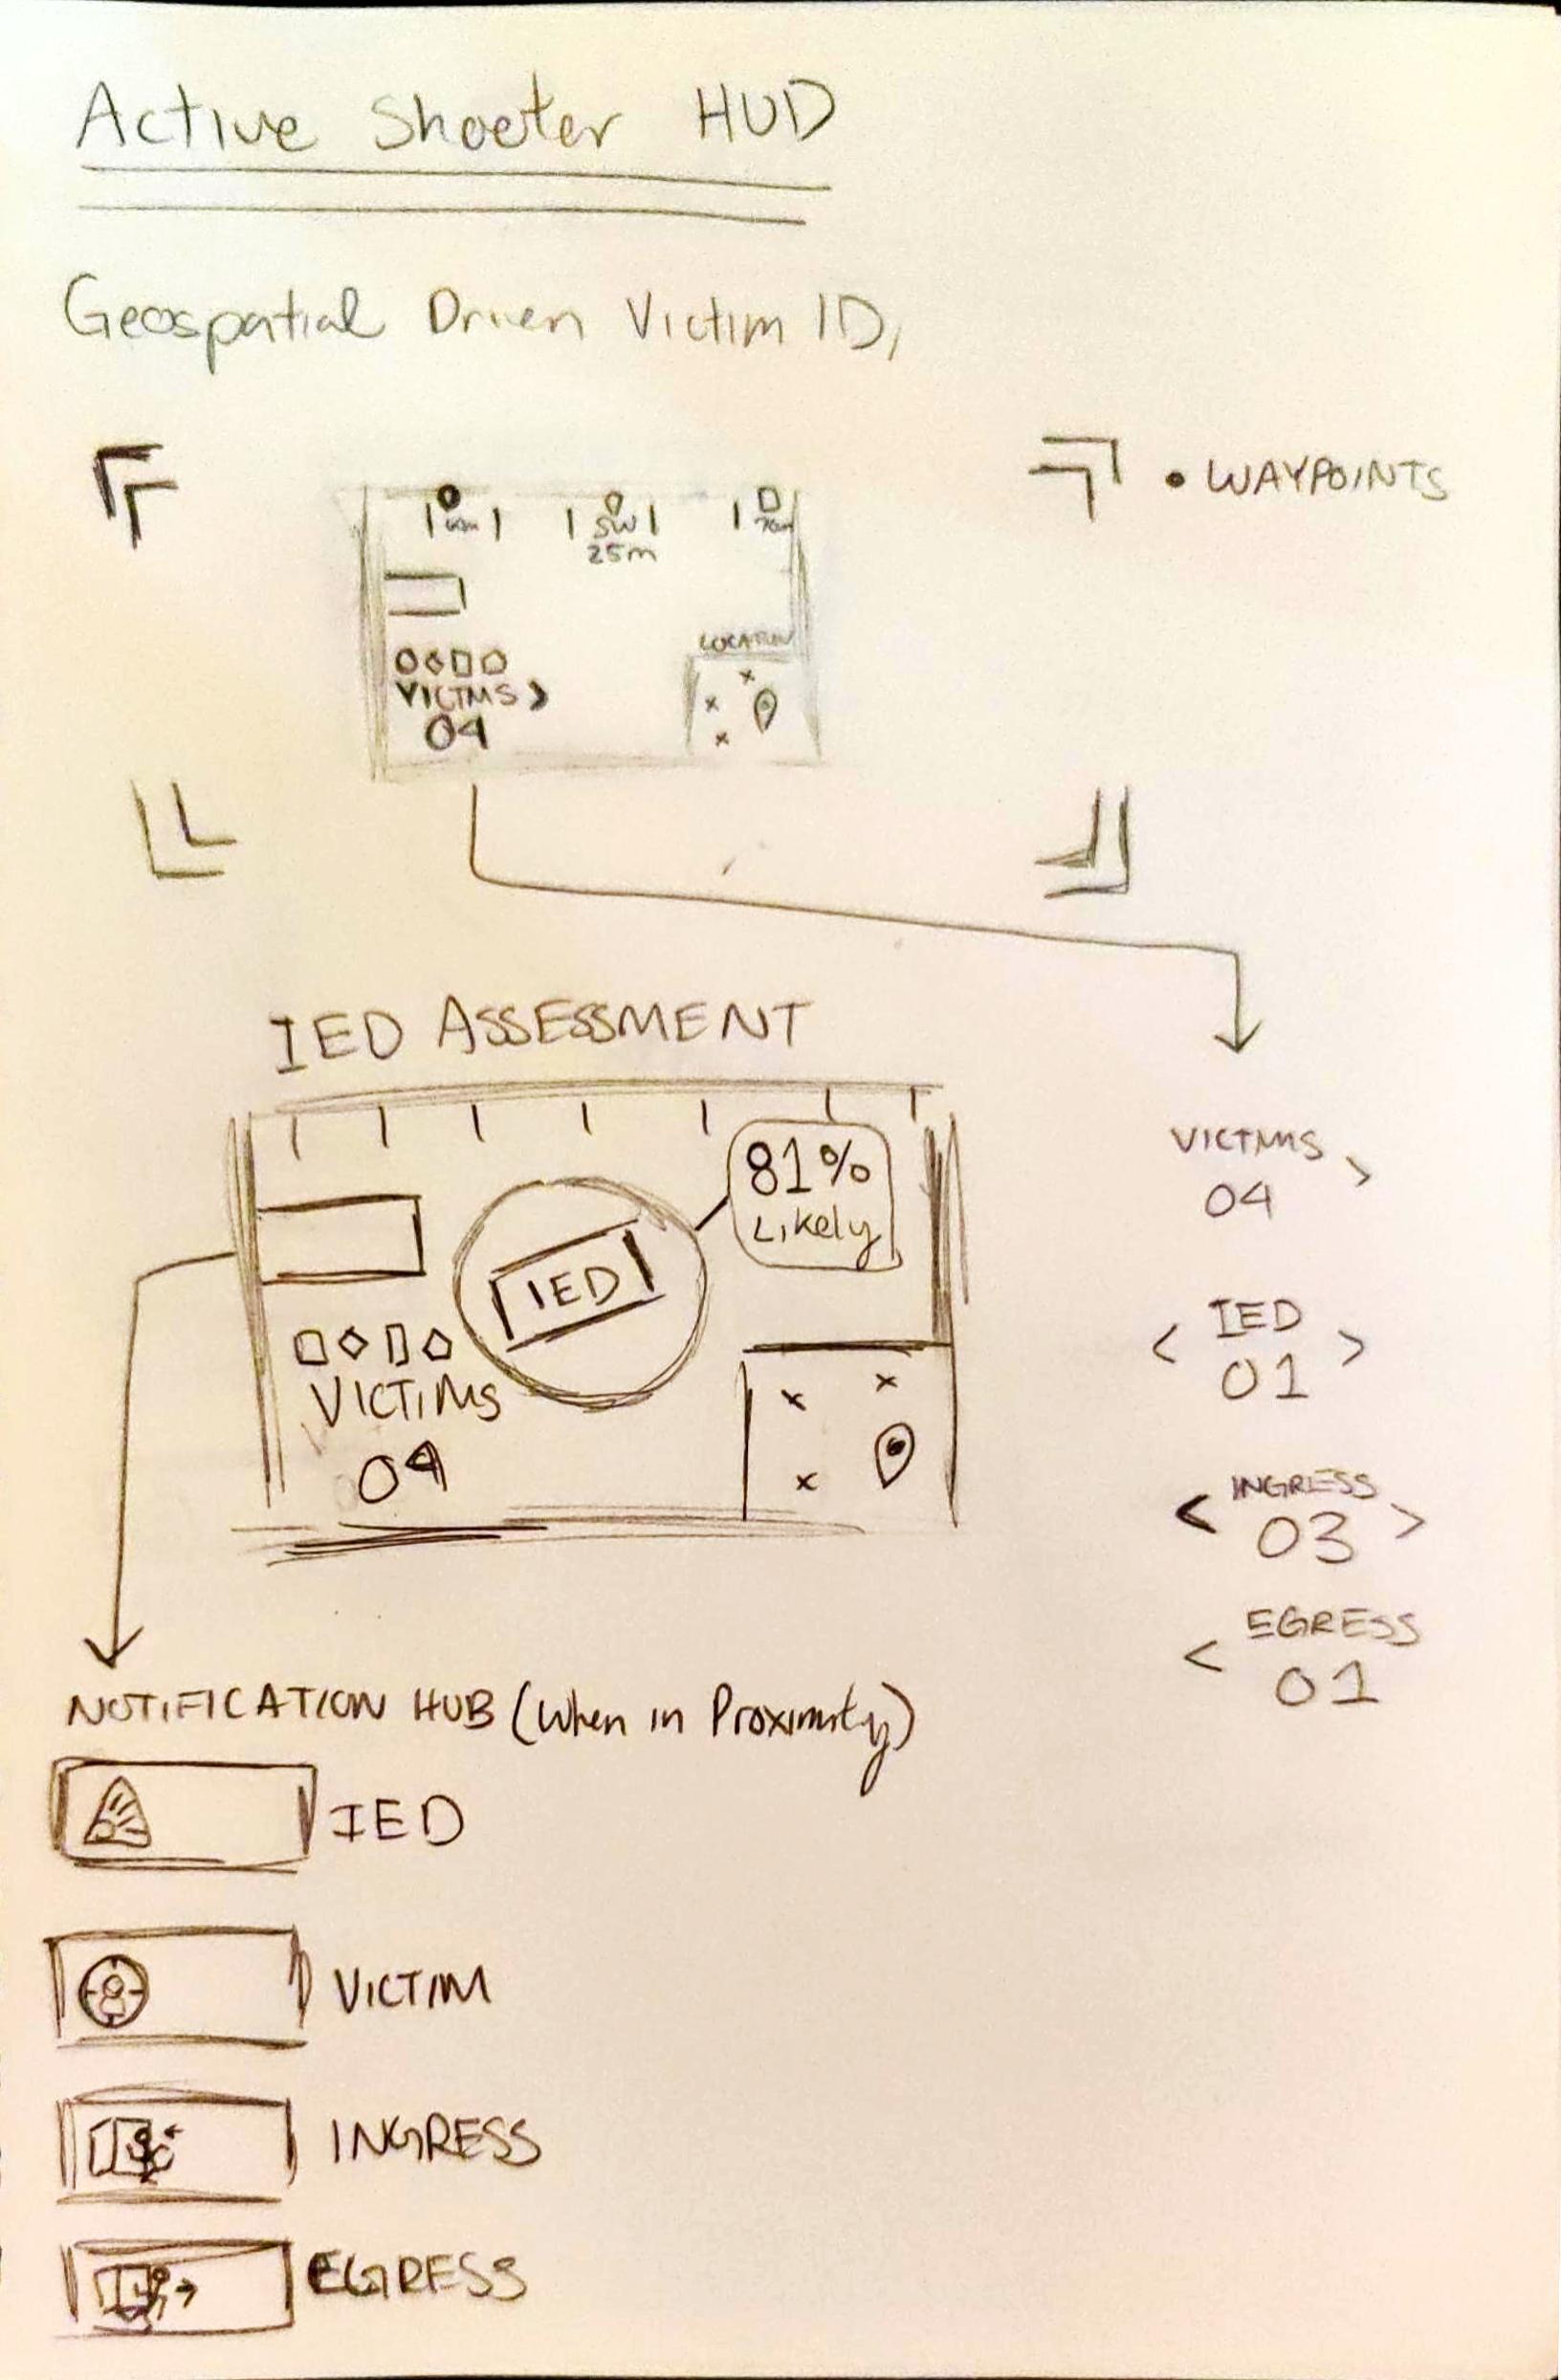 Active Shooter HUD
Geospatial Driven Victim ID,
• WAYPOINTS
SW
25m
LOCATION
VICTMS >
04
IED ASSESSMENT
81%
Likely
IED
VICTIMS
04
VICTMS >
04
< IED >
01
< INGRESS >
03
< EGRESS
01
NOTIFICATION HUB (when in Proximity)
IED
VICTIM
INGRESS
EGRESS